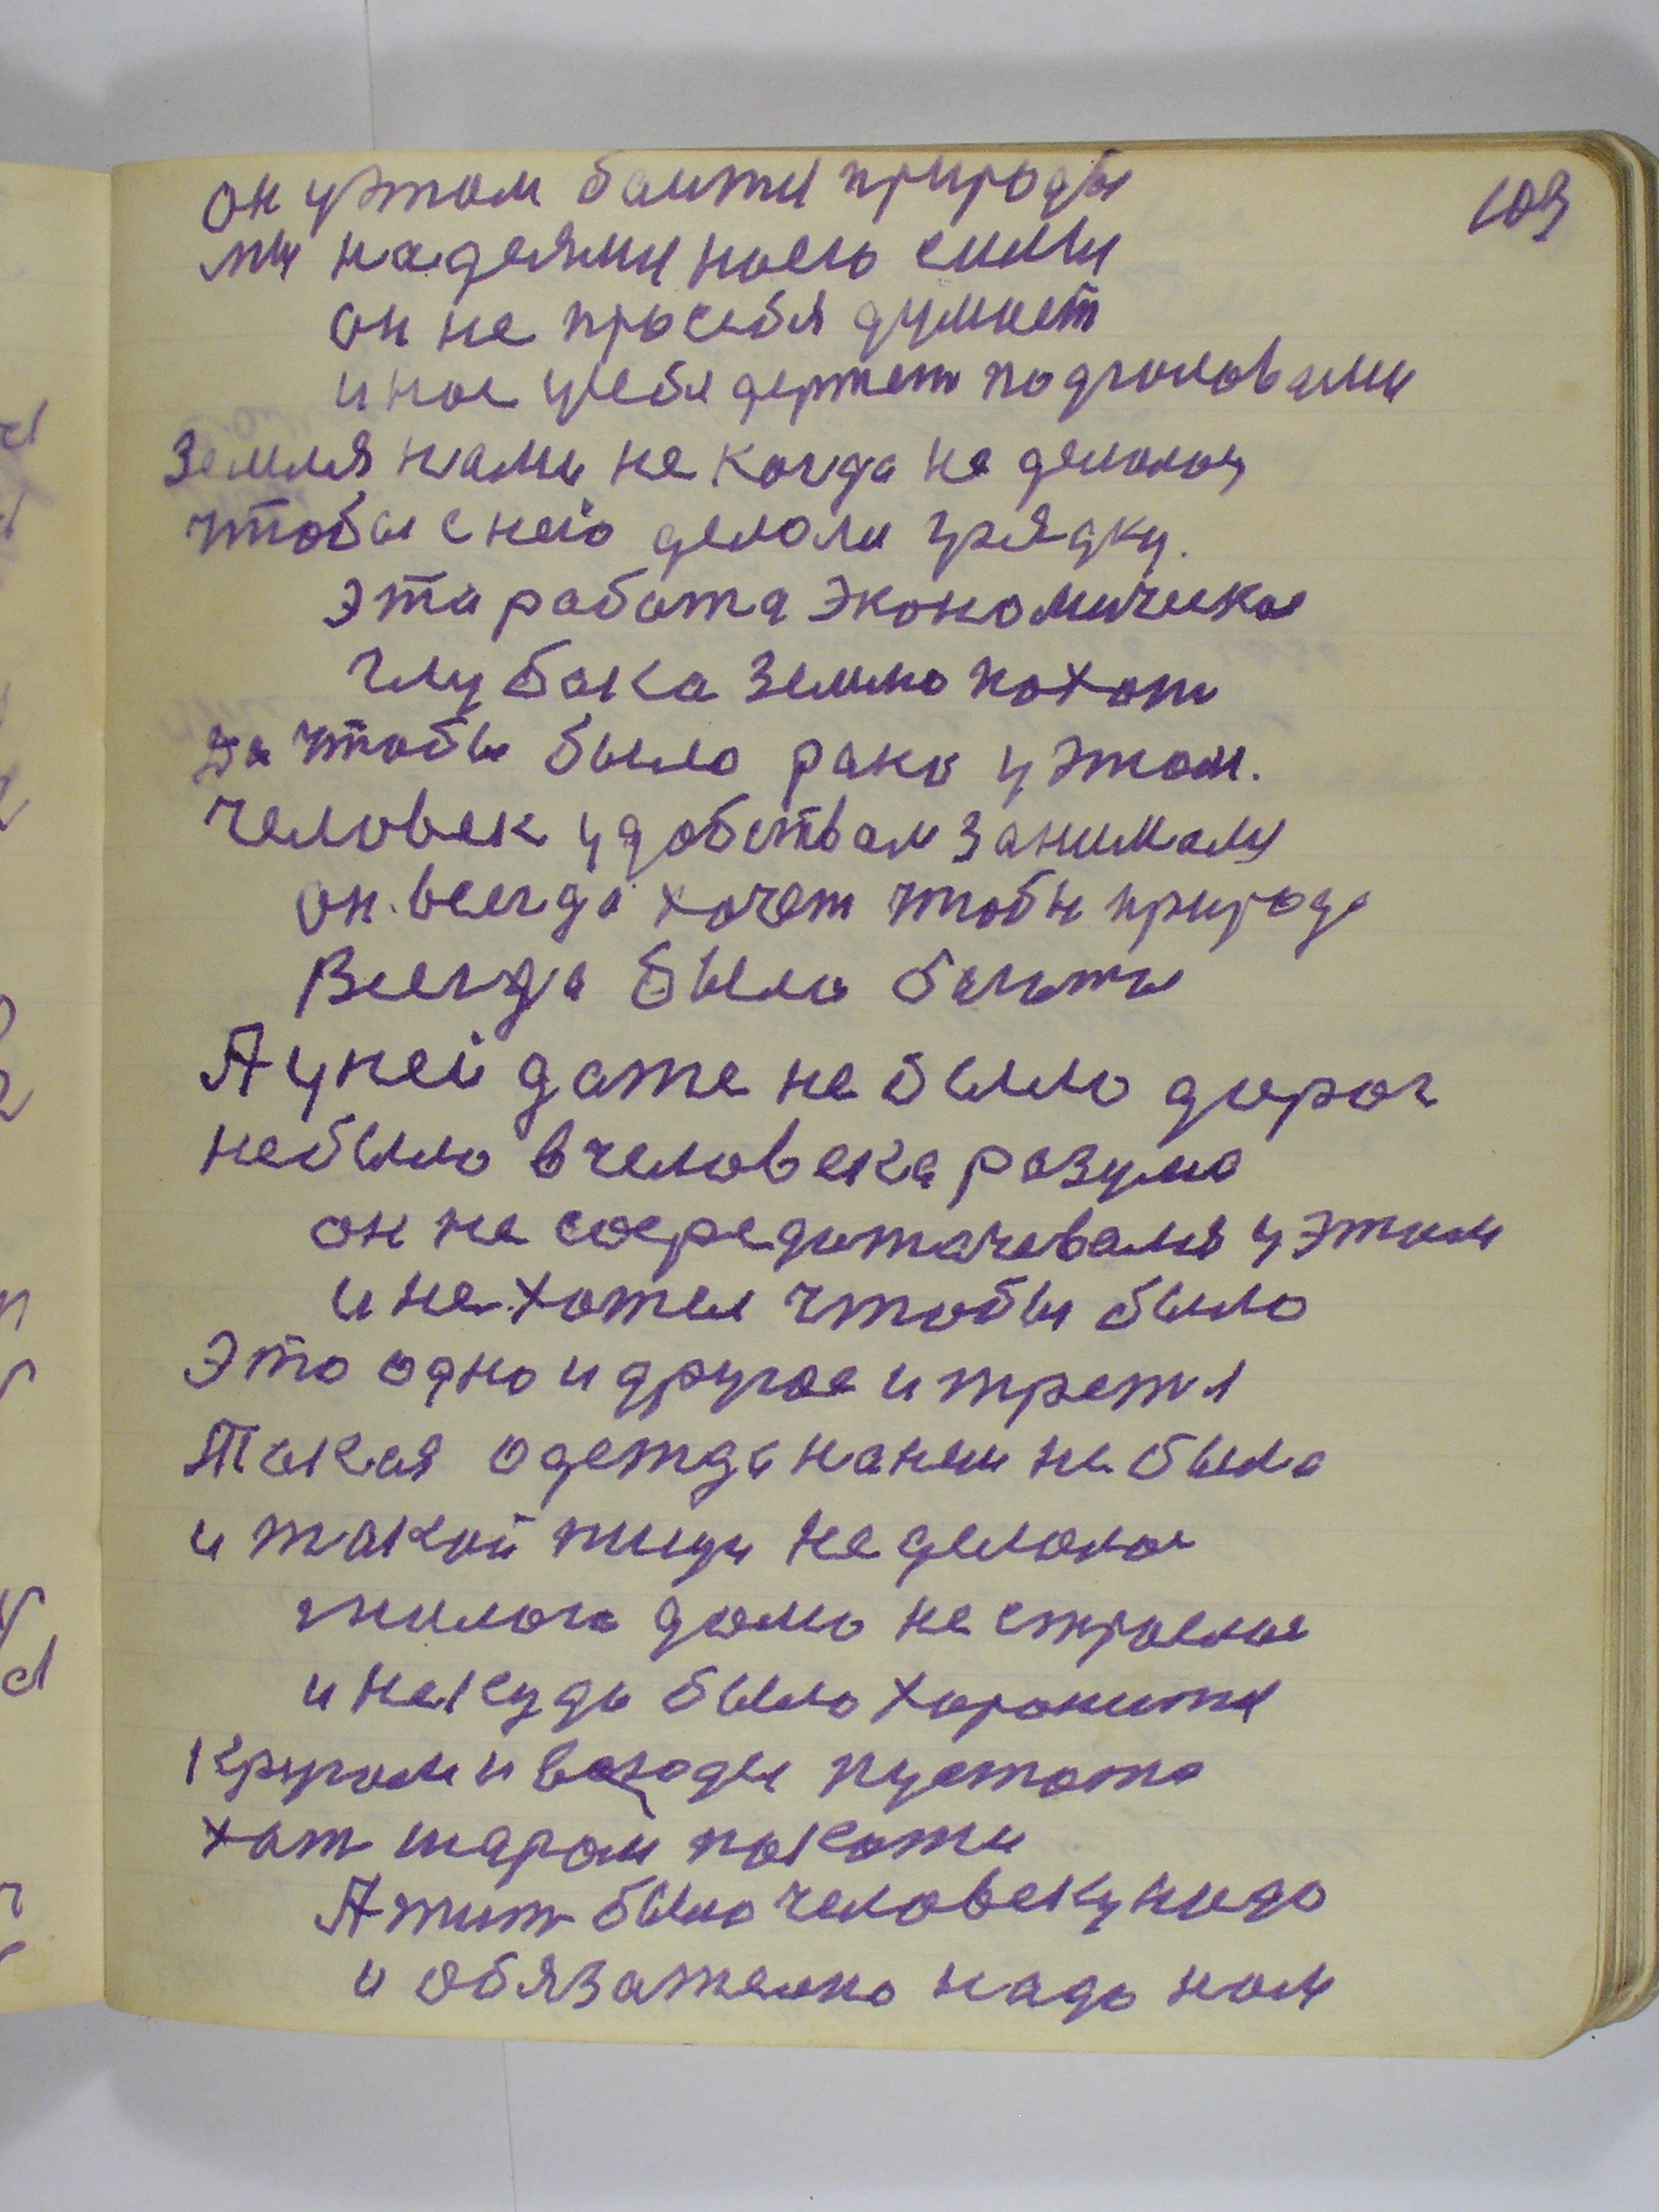 103
он у этом баится природы
мы надеями на его силы
он не про себя думает
и нас у себя держет под головами
Земля нами не когда не делалас
чтобы с нею делали грядку.
эта работа экономическая
глубака землю пахат
да чтобы было рано у этом.
человек удобствам занимался
он всегда хочет чтобы природа
Всегда была богатая
А у ней даже не было дорог
не было в человека разума
он не сосредотачевался у этом
и не хотел чтобы было
Это одно и другое и третия
Такая одежда на нем не была
и такой пищи не делалас
жилого дома не строелас
и не куда было харонится
Кругом и пустота
хат шаром покати
А жит было человеку надо
и обязателно надо нам